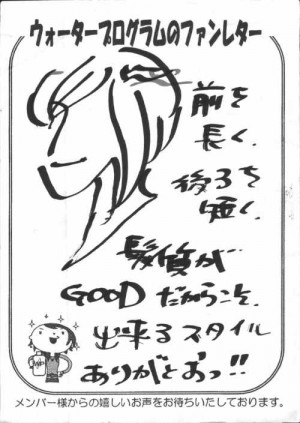 ウォータープログラムのファンレター
前を
長く、
後ろを
短く、
髪質が
GOODだからこそ、
出来るスタイル
ありがとおっ!!
メンバー様からの嬉しいお声をお待ちいたしております。